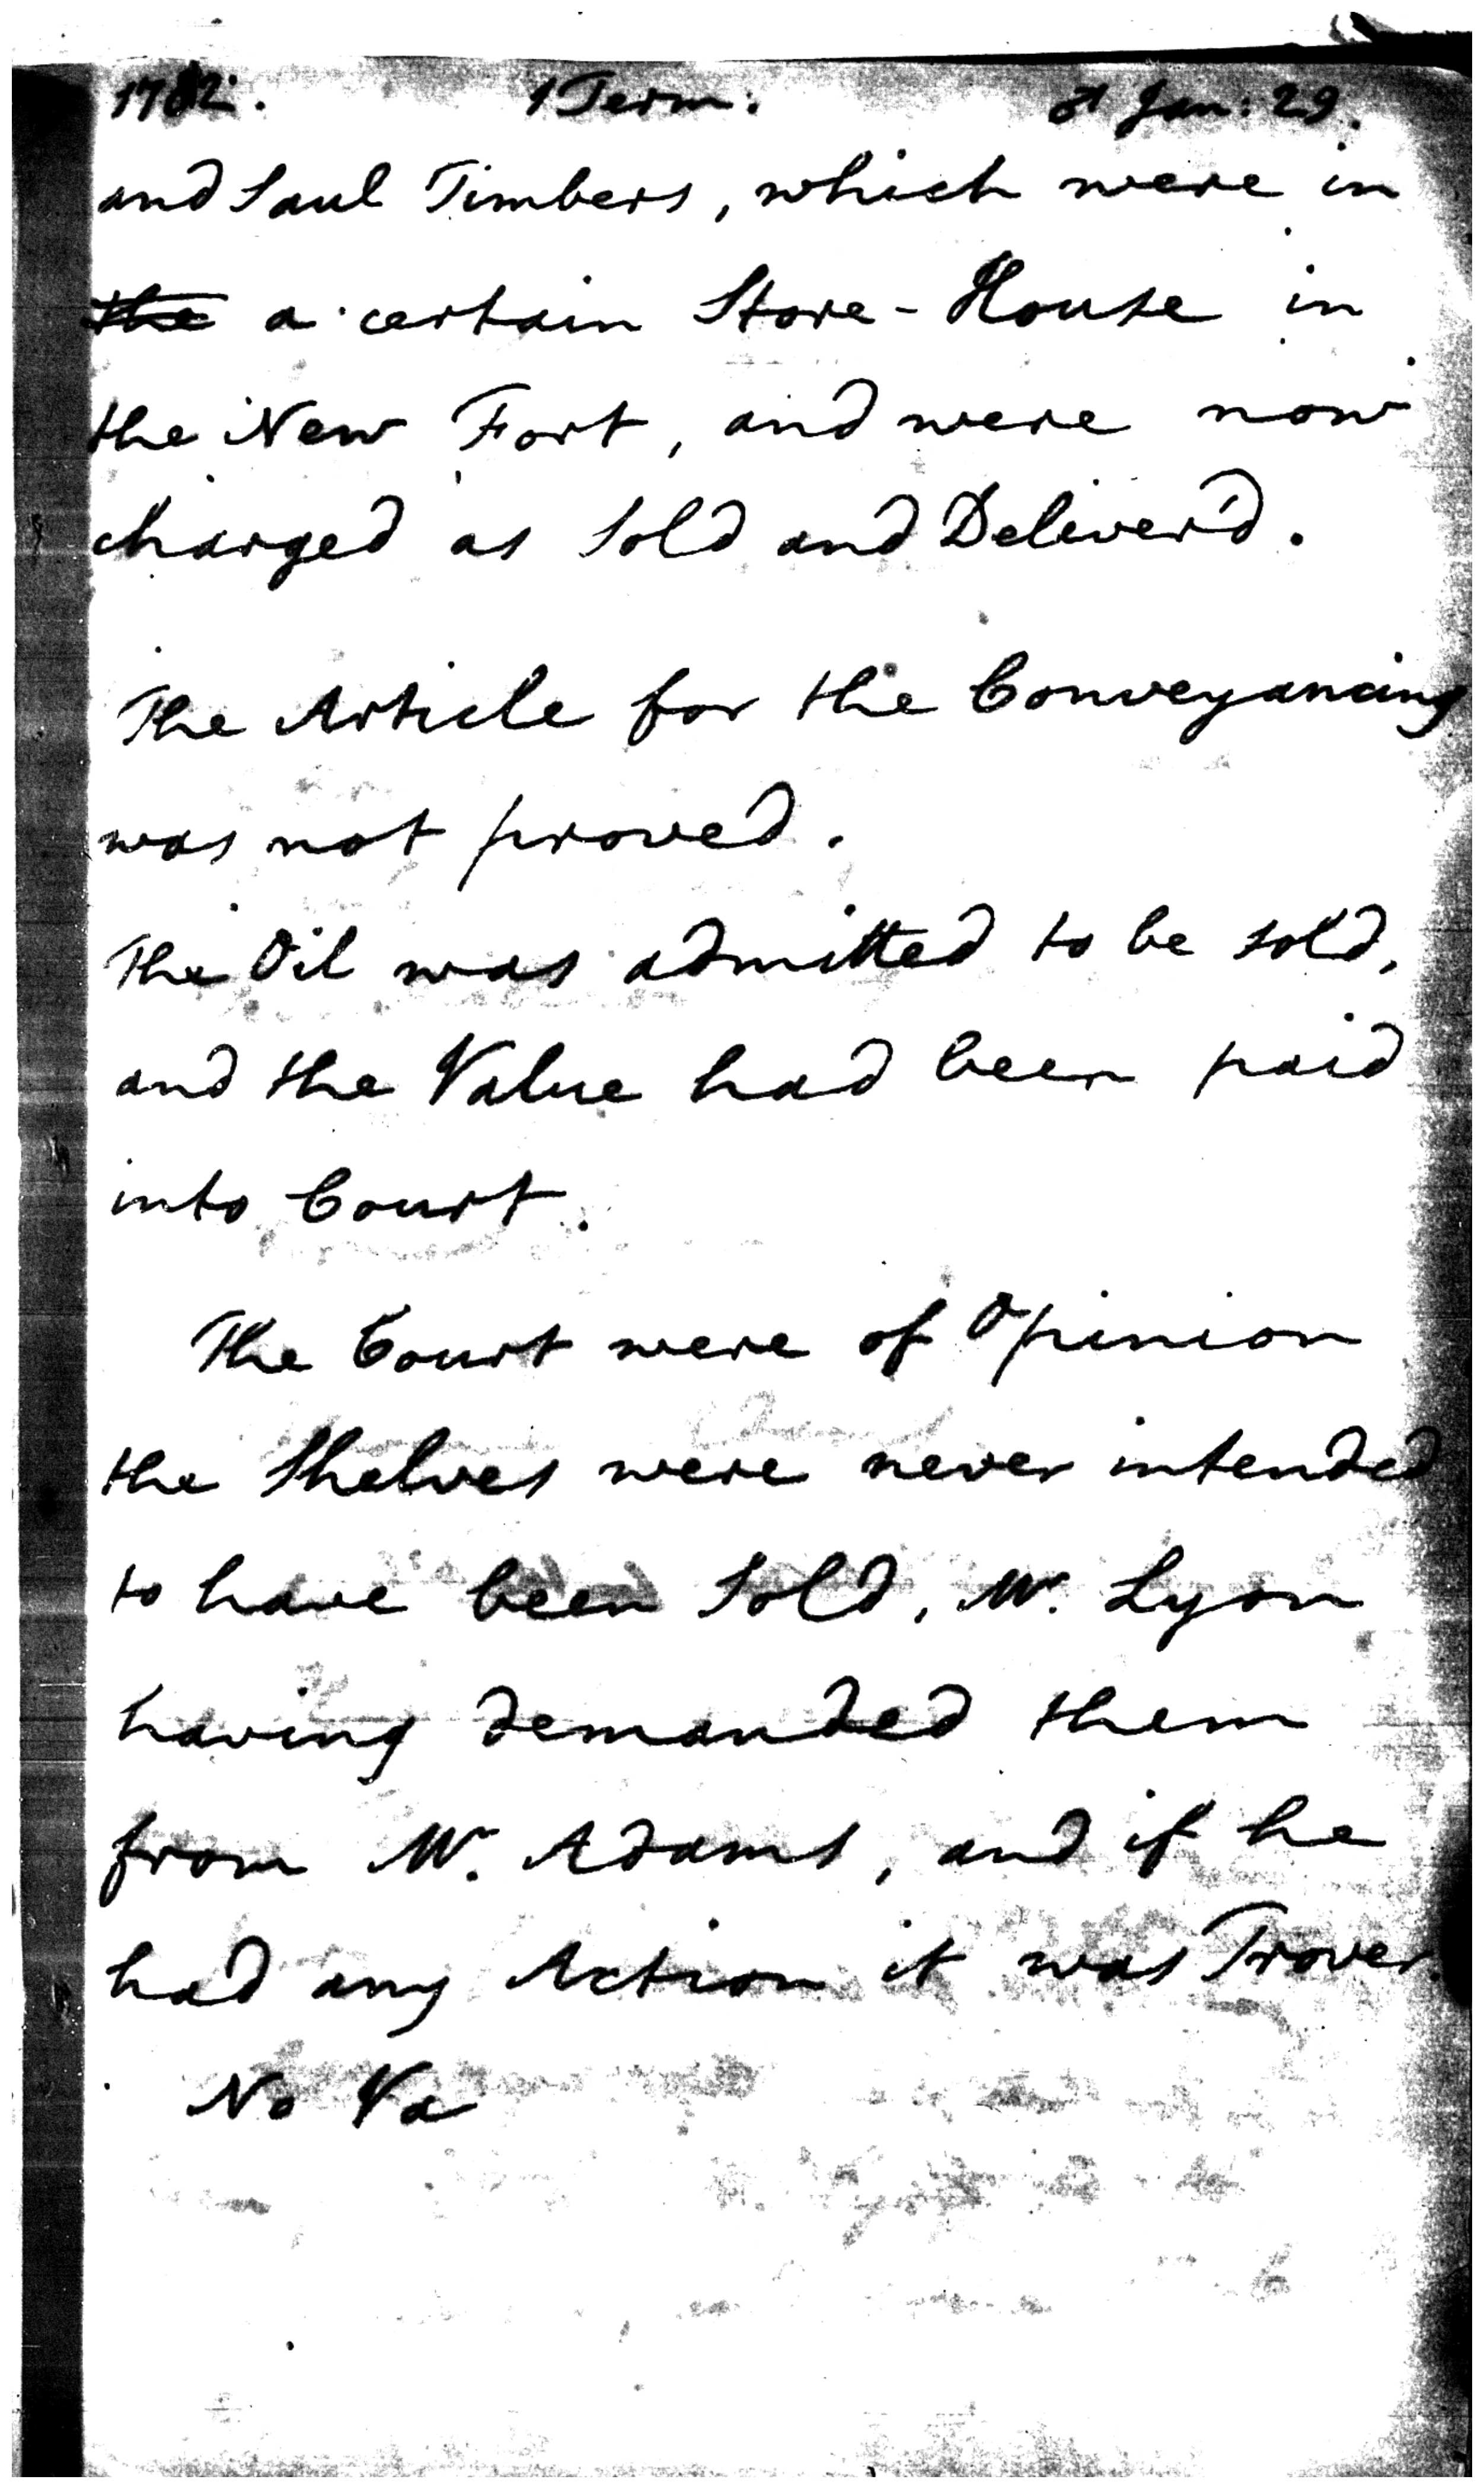 1782. 1 Term. ♂ Jan: 29.
and Saul Timbers, which were in
the a certain Store-House in
the New Fort, and were now
charged as Sold and Deliver'd.
The Article for the Conveyancing
was not proved.
The Oil was admitted to be sold,
and the Value had been paid
into Court.
The Court were of Opinion
the Shelves were never intended
to have been Sold, Mr. Lyon
having demanded them
from Mr. Adams, and if he
had any Action it was Trover.
No Va